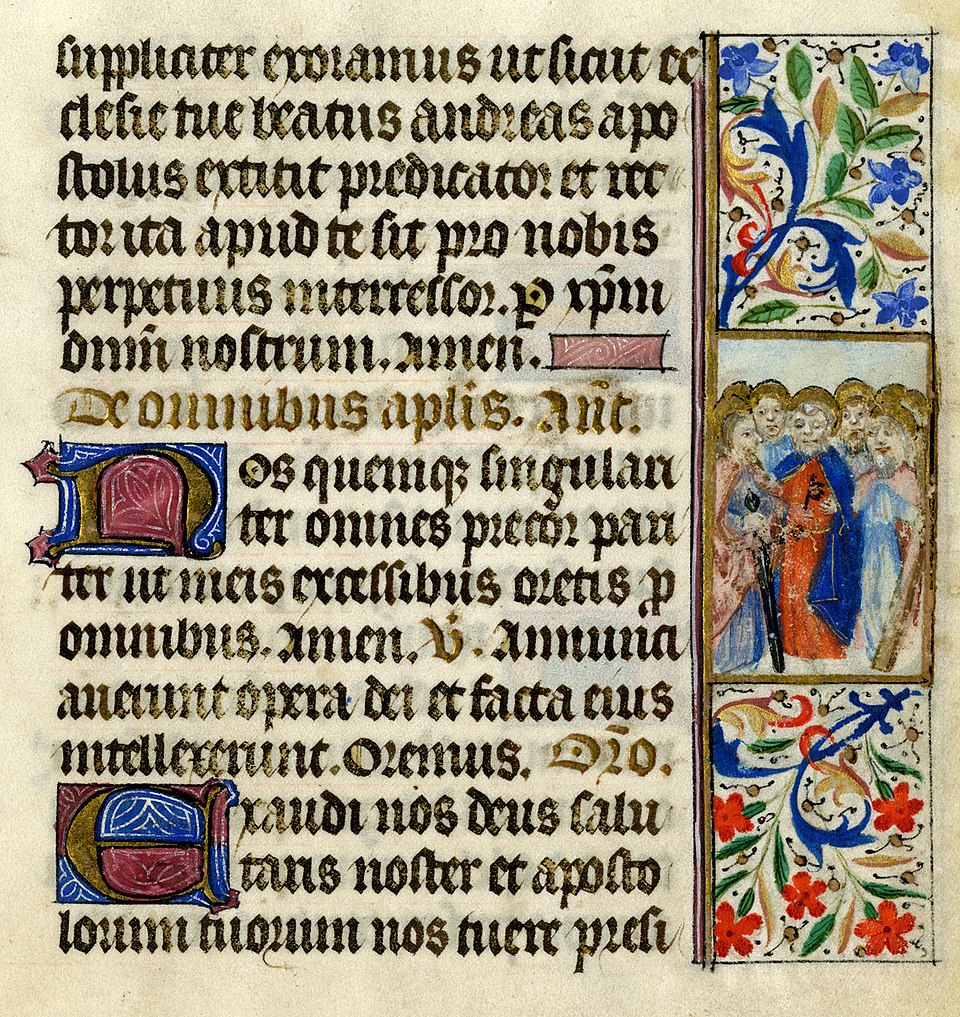 suppliciter exoramus ut sicut ec
clesie tue beatus andreas apo
stolus extitit predicator et rec
tor ita apud te sit pro nobis
perpetuus intercessor. ꝑ xp̄m
dn̄m nostrum. Amen.
De omnibus aplis. Ant̄.
Nos quemqꝫ singulari
ter omnes precor pari
ter ut meis excessibus oretis ꝓ
omnibus. Amen. V̄. Annunci
auerunt opera dei et facta eius
intellexerunt. Oremus. Or̄o.
Exaudi nos deus salu
taris noster et aposto
lorum tuorum nos tuere presi